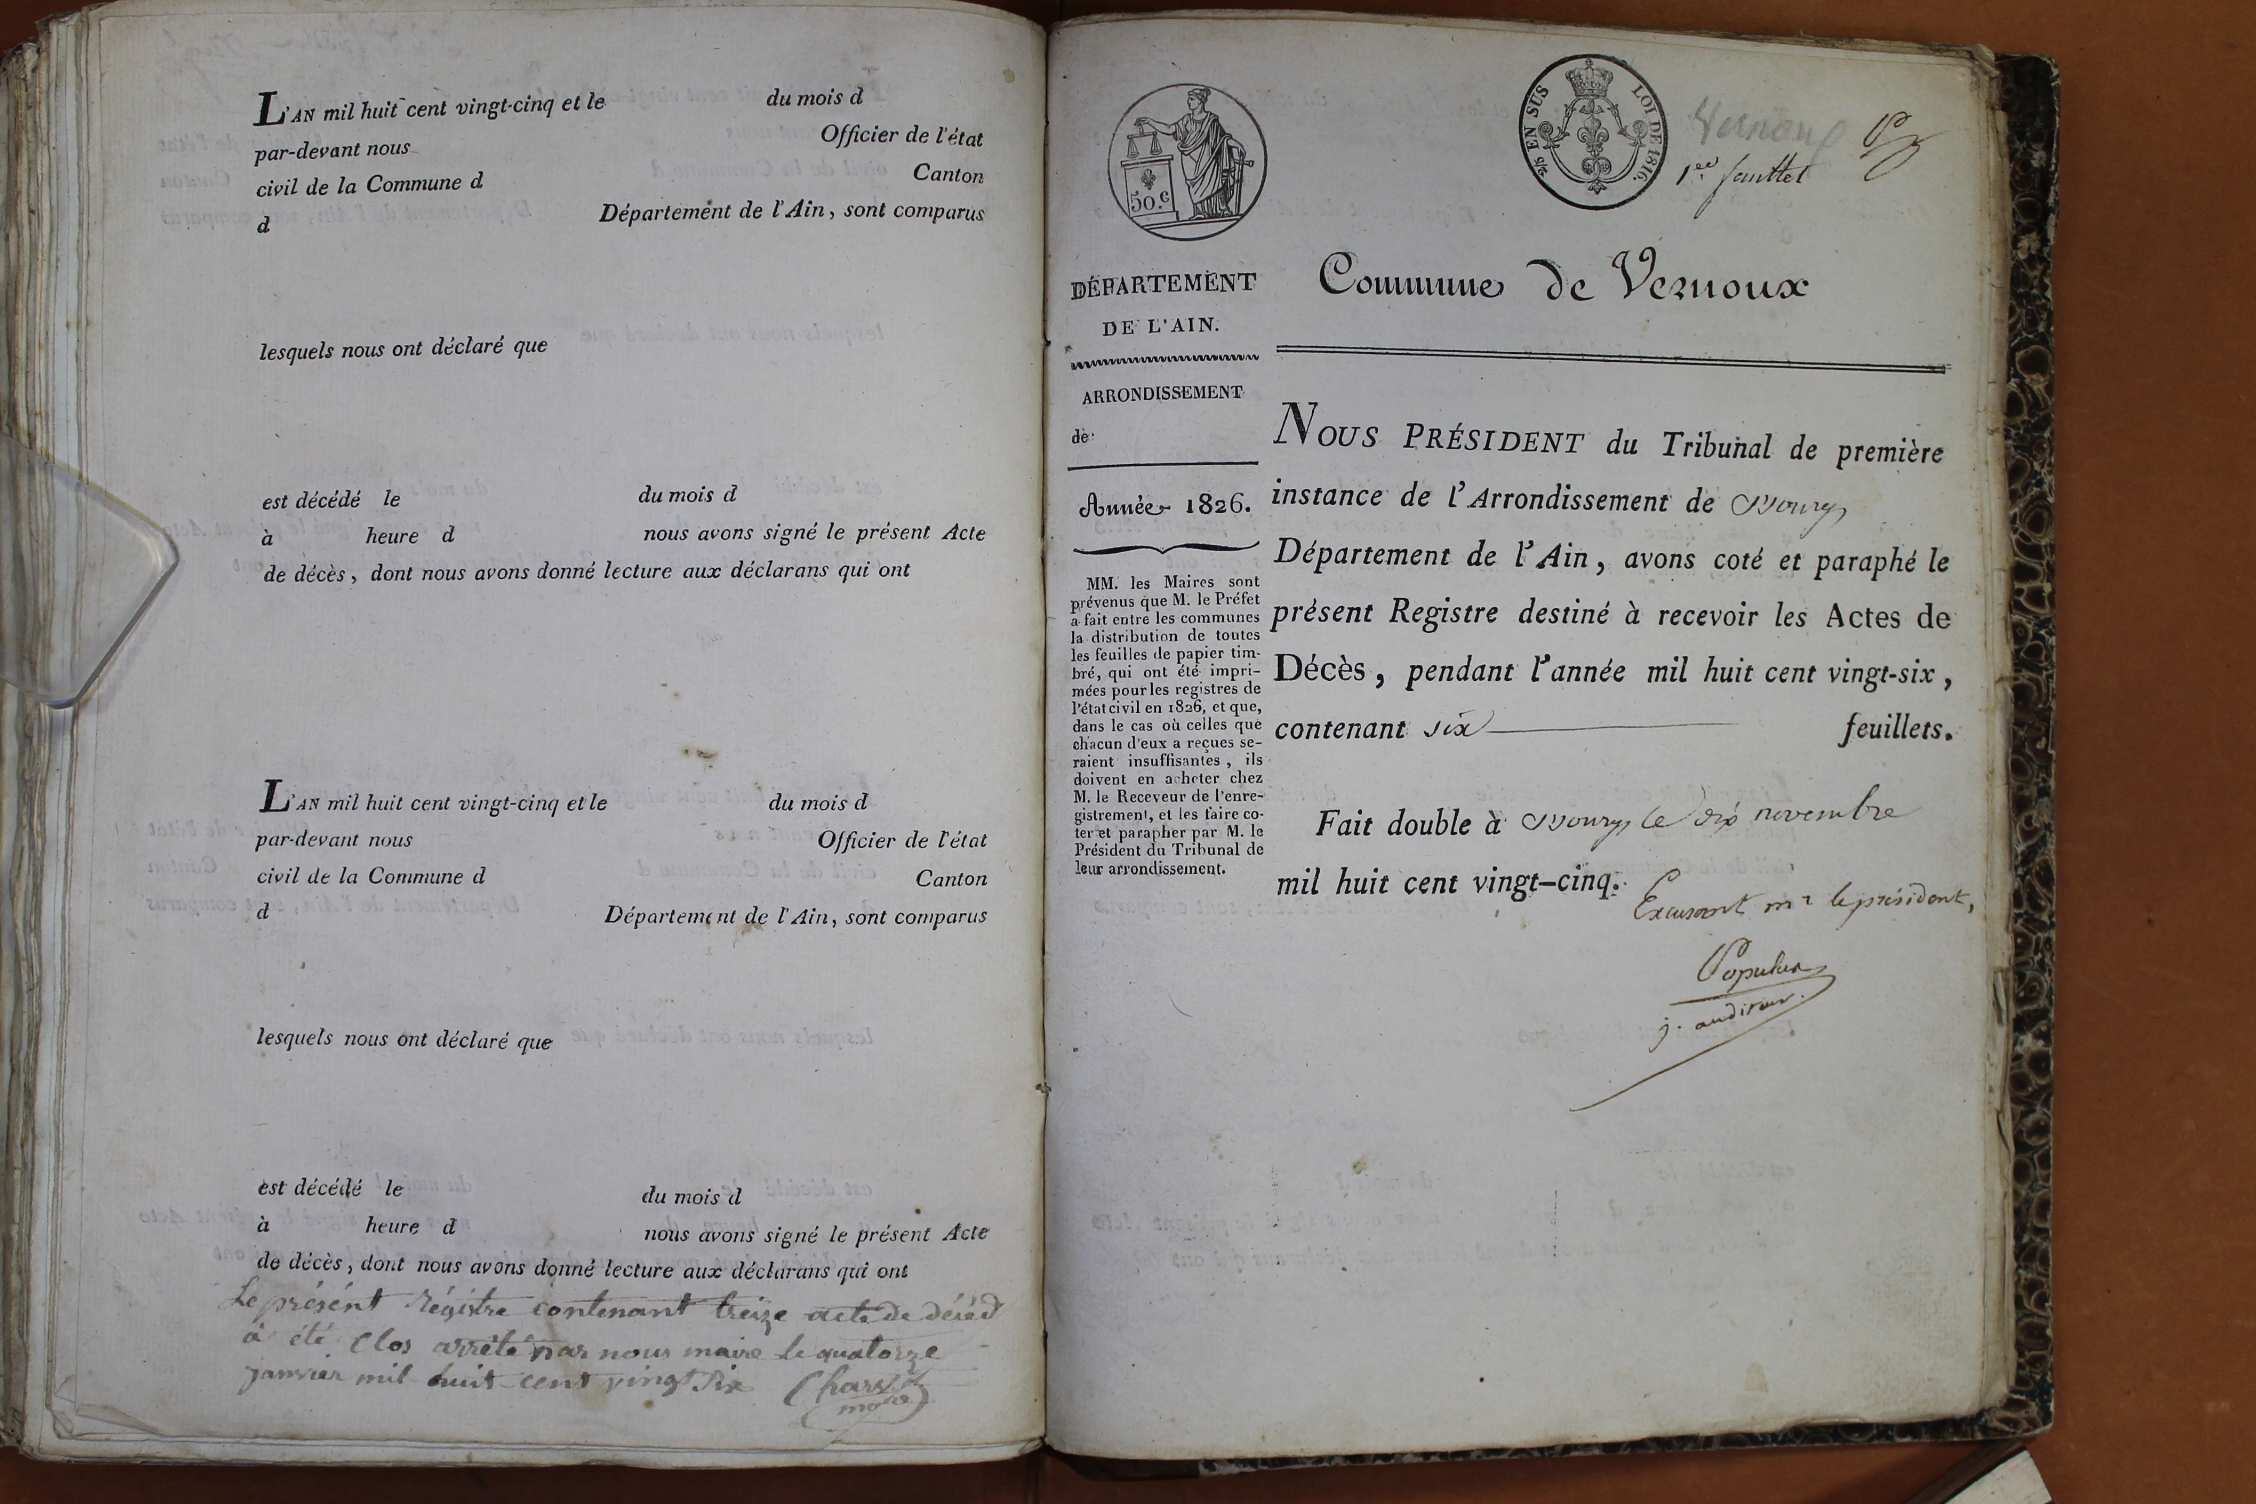 L'AN mil huit cent vingt-cinq et le du mois d
par-devant nous Officier de l'état
civil de la Commune d Canton
d Département de l'Ain, sont comparus
lesquels nous ont déclaré que
est décédé le du mois d
à heure d nous avons signé le présent Acte
de décès, dont nous avons donné lecture aux déclarans qui ont
L'AN mil huit cent vingt-cinq et le du mois d
par-devant nous Officier de l'état
civil de la Commune d Canton
d Département de l'Ain, sont comparus
lesquels nous ont déclaré que
est décédé le du mois d
à heure d nous avons signé le présent Acte
de décès, dont nous avons donné lecture aux déclarans qui ont
Le présént régistre contenant treize acte de décèd
a été Clos arrêté par nous maire le quatorze
janvier mil huit cent vingt six
50.c
2/5 EN SUS LOI DE 1816.
Vernoux
1er feuillet
DÉPARTEMENT
DE L'AIN.
ARRONDISSEMENT
de
Année 1826.
MM. les Maires sont
prévenus que M. le Préfet
a fait entre les communes
la distribution de toutes
les feuilles de papier tim-
bré, qui ont été impri-
mées pour les registres de
l'état civil en 1826, et que,
dans le cas où celles que
chacun d'eux a reçues se-
raient insuffisantes, ils
doivent en acheter chez
M. le Receveur de l'enre-
gistrement, et les faire co-
ter et parapher par M. le
Président du Tribunal de
leur arrondissement.
Commune de Vernoux
NOUS PRÉSIDENT du Tribunal de première
instance de l'Arrondissement de Bourg
Département de l'Ain, avons coté et paraphé le
présent Registre destiné à recevoir les Actes de
Décès, pendant l'année mil huit cent vingt-six,
contenant six feuillets.
Fait double à Bourg le dix novembre
mil huit cent vingt-cinq.
Excusant mr le président,
Populus
j. auditeur.